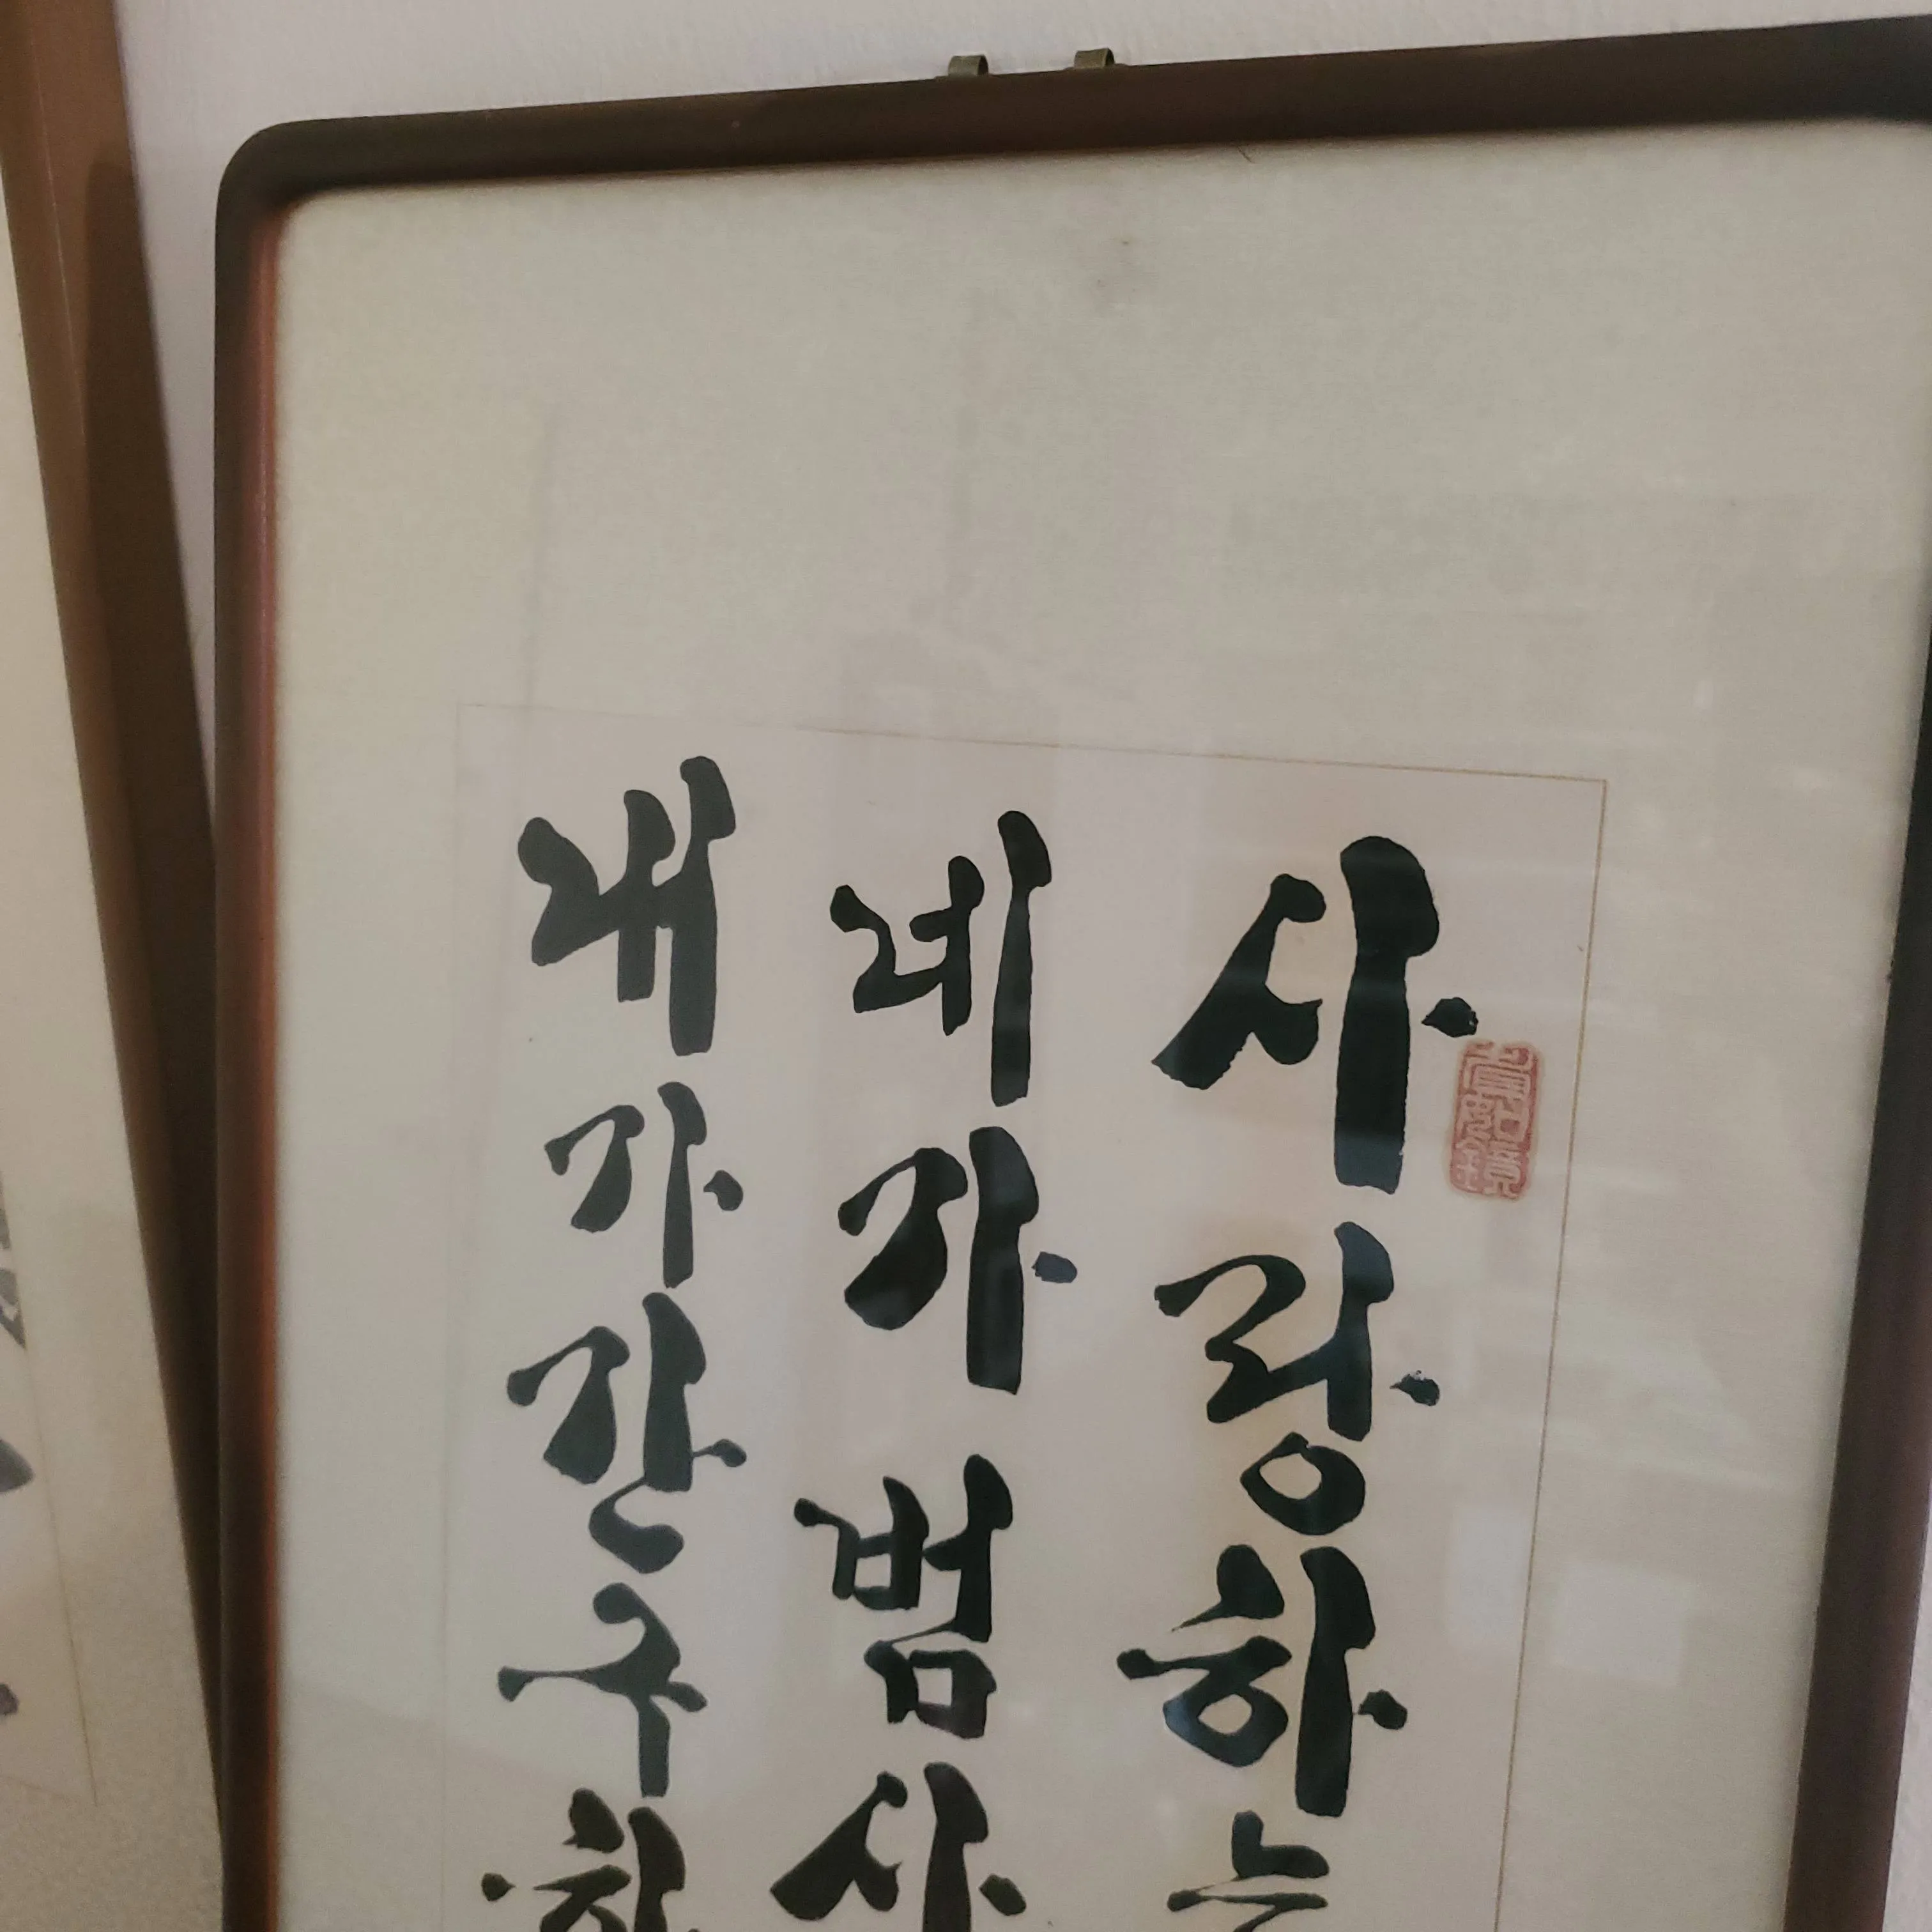 사랑하는
네가 범사
내가 간구하